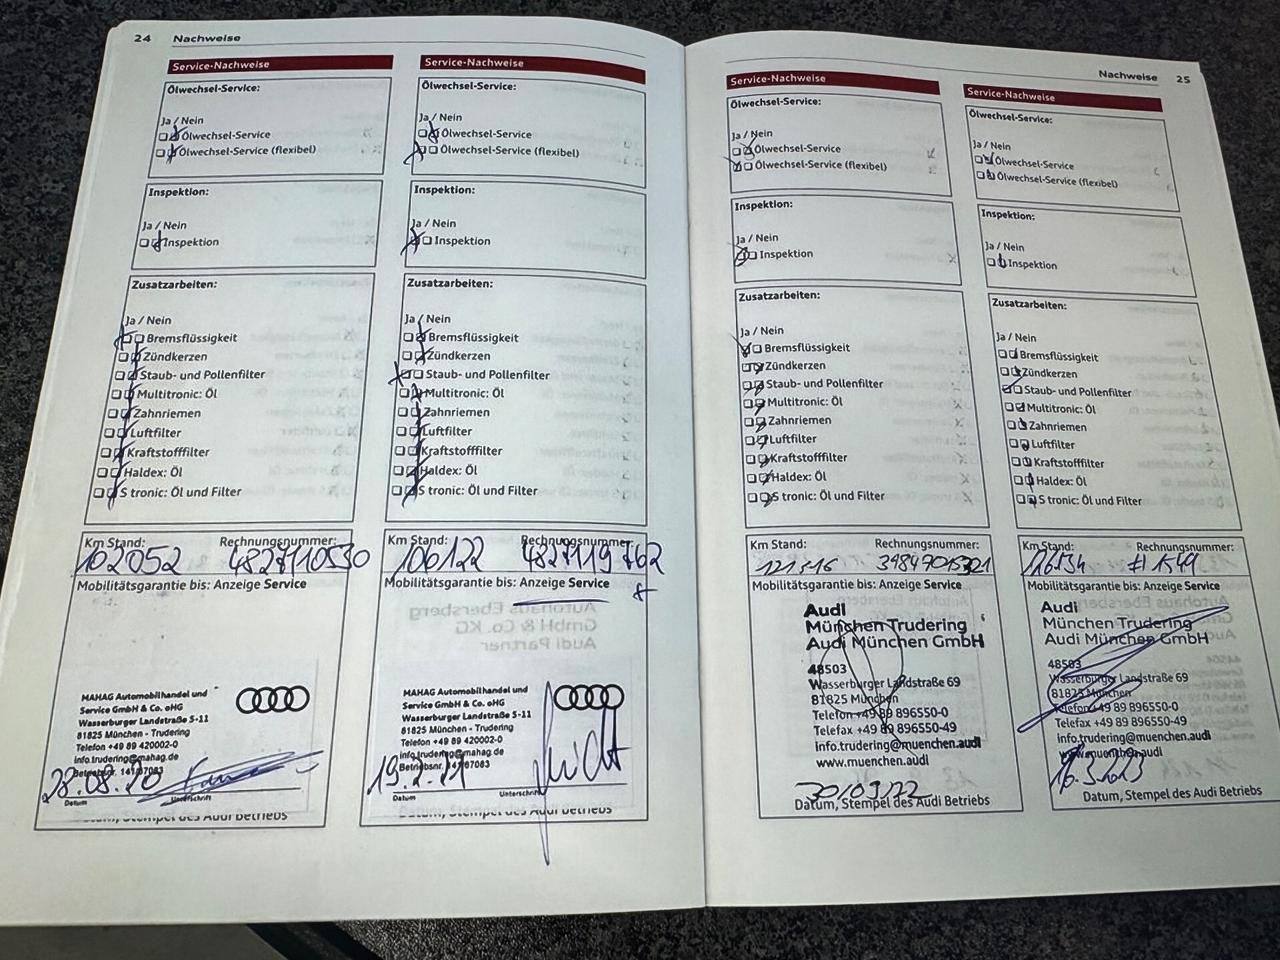 24 Nachweise
Service-Nachweise
Ölwechsel-Service:
Ja / Nein
Ölwechsel-Service
Ölwechsel-Service (flexibel)
Inspektion:
Ja / Nein
Inspektion
Zusatzarbeiten:
Ja / Nein
Bremsflüssigkeit
Zündkerzen
Staub- und Pollenfilter
Multitronic: Öl
Zahnriemen
Luftfilter
Kraftstofffilter
Haldex: Öl
S tronic: Öl und Filter
Km Stand: Rechnungsnummer:
102052 4827110530
Mobilitätsgarantie bis: Anzeige Service
MAHAG Automobilhandel und
Service GmbH & Co. oHG
Wasserburger Landstraße 5-11
81825 München - Trudering
Telefon +49 89 420002-0
info.trudering@mahag.de
Betriebsnr. 141/67083
28.08.20
Datum Unterschrift
Datum, Stempel des Audi Betriebs
Service-Nachweise
Ölwechsel-Service:
Ja / Nein
Ölwechsel-Service
Ölwechsel-Service (flexibel)
Inspektion:
Ja / Nein
Inspektion
Zusatzarbeiten:
Ja / Nein
Bremsflüssigkeit
Zündkerzen
Staub- und Pollenfilter
Multitronic: Öl
Zahnriemen
Luftfilter
Kraftstofffilter
Haldex: Öl
S tronic: Öl und Filter
Km Stand: Rechnungsnummer:
106122 4827119762
Mobilitätsgarantie bis: Anzeige Service
MAHAG Automobilhandel und
Service GmbH & Co. oHG
Wasserburger Landstraße 5-11
81825 München - Trudering
Telefon +49 89 420002-0
info.trudering@mahag.de
Betriebsnr. 141/67083
19.2.21
Datum Unterschrift
Datum, Stempel des Audi Betriebs
Nachweise 25
Service-Nachweise
Ölwechsel-Service:
Ja / Nein
Ölwechsel-Service
Ölwechsel-Service (flexibel)
Inspektion:
Ja / Nein
Inspektion
Zusatzarbeiten:
Ja / Nein
Bremsflüssigkeit
Zündkerzen
Staub- und Pollenfilter
Multitronic: Öl
Zahnriemen
Luftfilter
Kraftstofffilter
Haldex: Öl
S tronic: Öl und Filter
Km Stand: Rechnungsnummer:
Mobilitätsgarantie bis: Anzeige Service
Audi
München Trudering
Audi München GmbH
48503
Wasserburger Landstraße 69
81825 München
Telefon +49 89 896550-0
Telefax +49 89 896550-49
info.trudering@muenchen.audi
www.muenchen.audi
30/03/22
Datum, Stempel des Audi Betriebs
Service-Nachweise
Ölwechsel-Service:
Ja / Nein
Ölwechsel-Service
Ölwechsel-Service (flexibel)
Inspektion:
Ja / Nein
Inspektion
Zusatzarbeiten:
Ja / Nein
Bremsflüssigkeit
Zündkerzen
Staub- und Pollenfilter
Multitronic: Öl
Zahnriemen
Luftfilter
Kraftstofffilter
Haldex: Öl
S tronic: Öl und Filter
Km Stand: Rechnungsnummer:
Mobilitätsgarantie bis: Anzeige Service
Audi
München Trudering
Audi München GmbH
48503
Wasserburger Landstraße 69
81825 München
Telefon +49 89 896550-0
Telefax +49 89 896550-49
info.trudering@muenchen.audi
www.muenchen.audi
16.3.2023
Datum, Stempel des Audi Betriebs